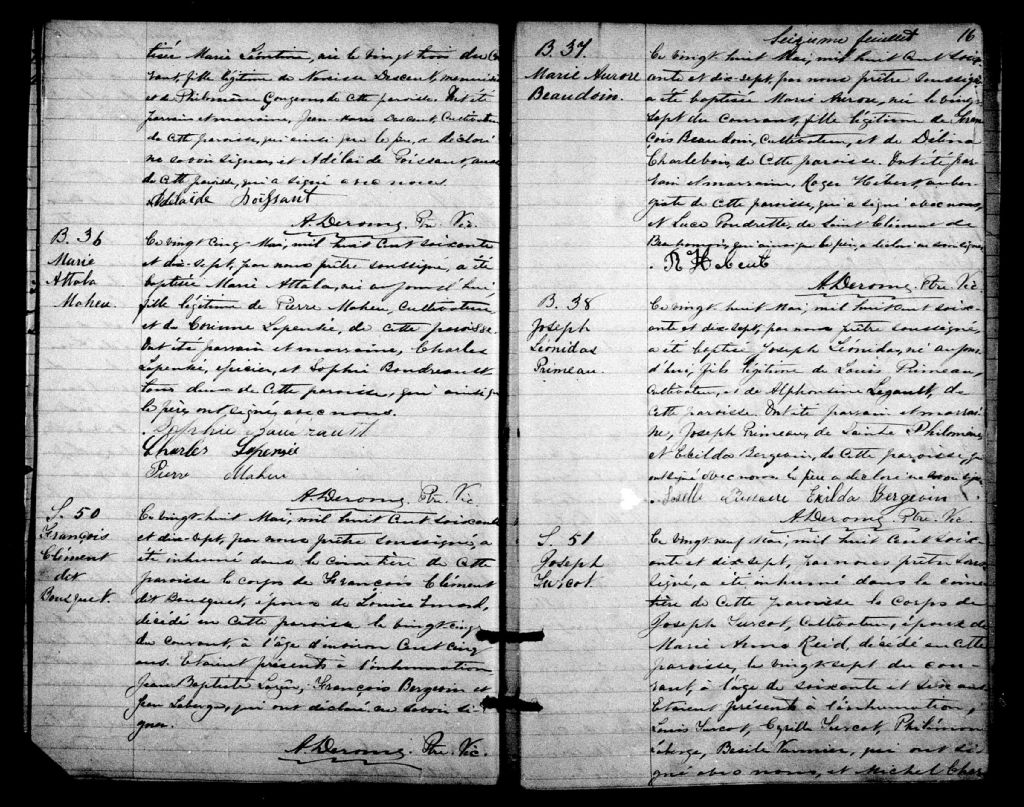 tisée Marie Léontine, née le vingt trois du Cou-
rant, fille légitime de Narcisse Descent, menuisier
et de Philomène Gougeon de cette paroisse. Ont été
parrain et marraine, Jean-Marie Descent, Cultivateur
de cette paroisse, qui ainsi que le père, a déclaré
ne savoir signer, et Adélaïde Poissant, aussi
de cette paroisse, qui a signé avec nous.
Adelaïde Poissant
A. Derome, Ptr. Vic.
B. 36
Marie
Attala
Maheu.
Ce vingt cinq Mai, mil huit cent soixante
et dix-sept, par nous prêtre soussigné, a été
baptisée Marie Attala, née aujourd'hui,
fille légitime de Pierre Maheu, Cultivateur,
et de Corinne Lepensée, de cette paroisse.
Ont été parrain et marraine, Charles
Lepensée, épicier, et Sophie
tous deux de cette paroisse, qui ainsi que
le père, ont signé avec nous.
Sophie
Charles Lepensée
Pierre Maheu
A. Derome, Ptr. Vic.
S. 50
François
Clément
dit
Bousquet.
Ce vingt-huit Mai, mil huit cent soixante
et dix-sept, par nous prêtre soussigné, a
été inhumé dans le cimetière de cette
paroisse le corps de François Clément
dit Bousquet, époux de Louise
décédé en cette paroisse le vingt cinq
du courant, à l'âge d'environ Cent cinq
ans. Etaient présents à l'inhumation
Jean Baptiste François Bergevin et
Jean Laberge, qui ont déclaré ne savoir si-
gner.
A. Derome, Ptr. Vic.
Seizième feuillet 16
B. 37
Marie Aurore
Beaudoin.
Ce vingt huit Mai, mil huit cent soix-
ante et dix-sept, par nous prêtre soussigné
a été baptisée Marie Aurore, née le vingt
sept du courant, fille légitime de Fran-
çois Beaudoin, Cultivateur, et de Délina
Charlebois de cette paroisse. Ont été par-
rain et marraine, Roger Hébert, auber-
giste de cette paroisse, qui a signé avec nous,
et Luce Poudrette, de Saint Clément de
Beauharnois, qui ainsi que le père, a déclaré ne savoir signer.
R Hebert
A. Derome, Ptr. Vic.
B. 38
Joseph
Léonidas
Primeau.
Ce vingt huit Mai, mil huit cent soix-
ante et dix-sept, par nous prêtre soussigné,
a été baptisé Joseph Léonidas, né aujour-
d'hui, fils légitime de Louis Primeau,
Cultivateur, et de Alphonsine Legault, de
cette paroisse. Ont été parrain et marrai-
ne, Joseph Primeau, de Sainte Philomène,
et Exilda Bergevin, de cette paroisse, qui
ont signé avec nous. Le père a déclaré ne savoir signer.
Exilda Bergevin
A. Derome, Ptr. Vic.
S. 51
Joseph
Turcot.
Ce vingt neuf Mai, mil huit cent soix-
ante et dix sept, par nous prêtre sous-
signé, a été inhumé dans le cime-
tière de cette paroisse le corps de
Joseph Turcot, Cultivateur, époux de
Marie Anne Reid, décédé en cette
paroisse, le vingt sept du cou-
rant, à l'âge de soixante et seize ans.
Etaient présents à l'inhumation,
Louis Turcot, Cyrille Turcot, Philémon
Laberge, Basile Vannier, qui ont si-
gné avec nous, et Michel Char-